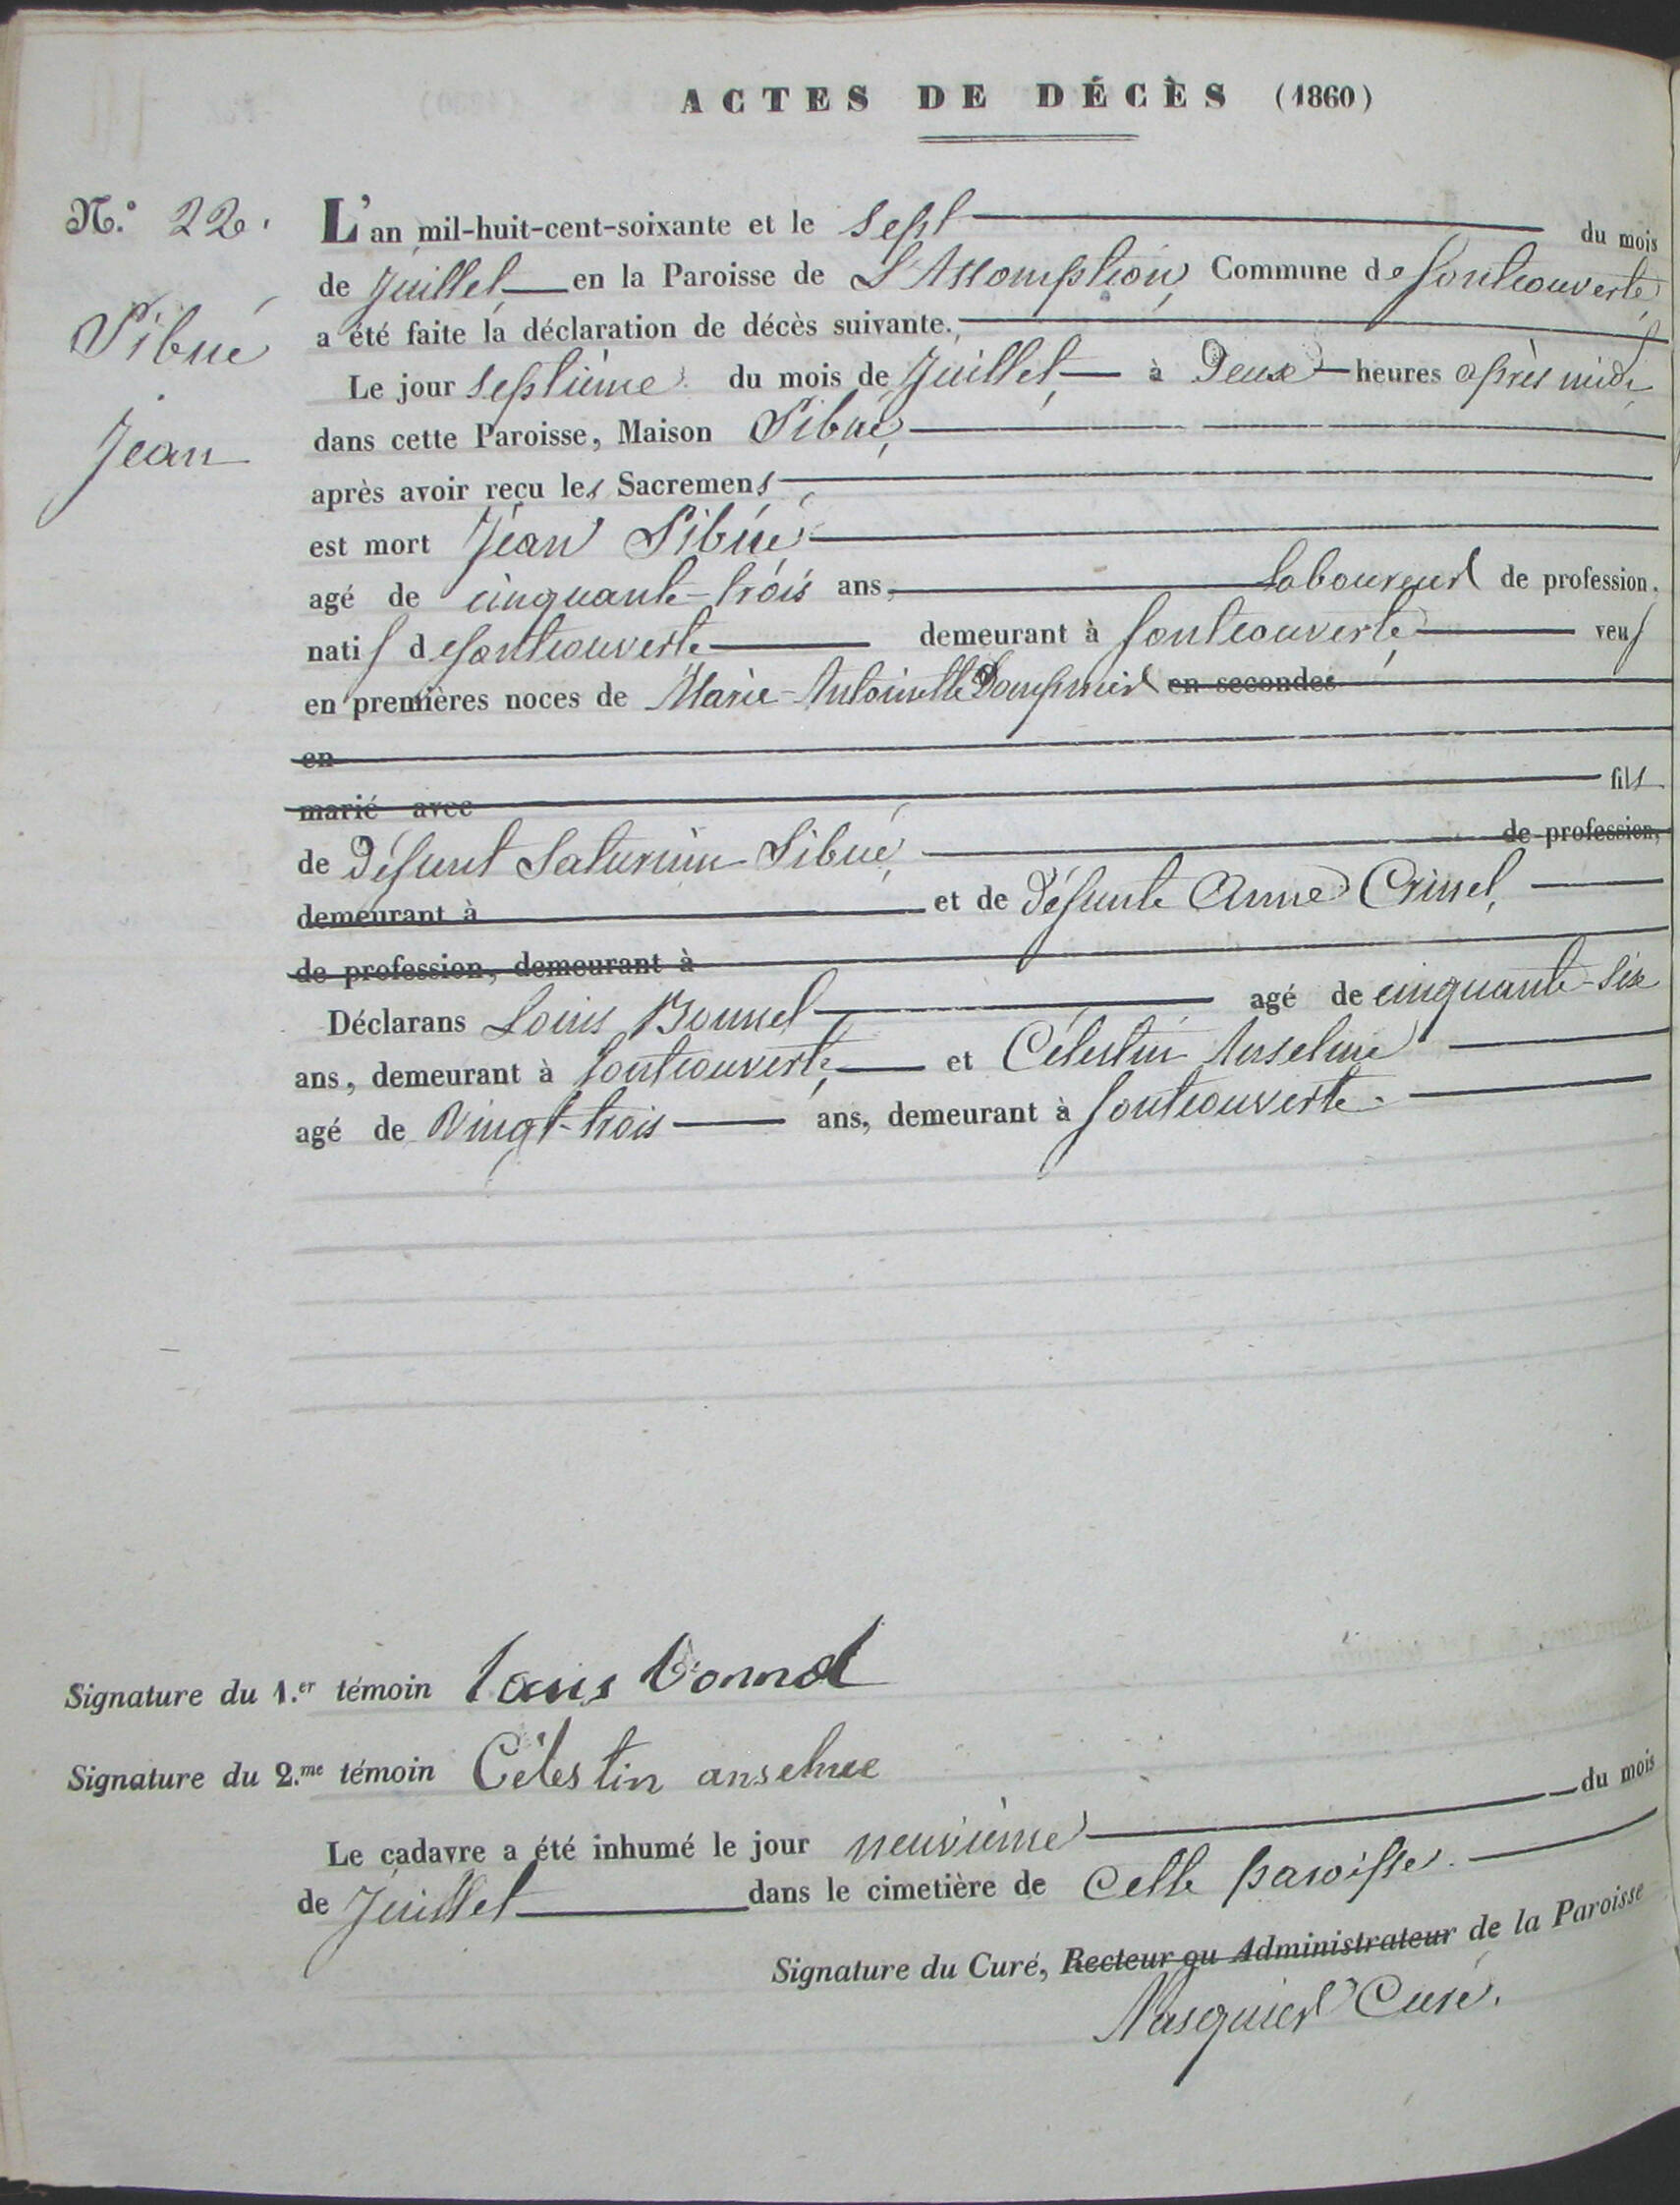 ACTES DE DÉCÈS (1860)
N.º 22.
Sibué
Jean
L'an mil-huit-cent-soixante et le sept du mois
de Juillet en la Paroisse de L'Assomption, Commune de fontcouverte
a été faite la déclaration de décès suivante.
Le jour septième du mois de Juillet, à Deux heures après midi,
dans cette Paroisse, Maison Sibué,
après avoir reçu les Sacremens
est mort Jean Sibué
agé de cinquante-trois ans, laboureur de profession.
natif de fontcouverte demeurant à fontcouverte, veuf
en premières noces de Marie-Antoinette Dompnier en secondes
en
marié avec fils
de Défunt Saturnin Sibué, de profession,
demeurant à et de Défunte Anne Crinel,
de profession, demeurant à
Déclarans Louis Bonnel agé de cinquante-six
ans, demeurant à fontcouverte, et Célestin Anselme
agé de Vingt-trois ans, demeurant à fontcouverte.
Signature du 1.er témoin Louis bonnel
Signature du 2.me témoin Célestin anselme
Le cadavre a été inhumé le jour neuvième du mois
de Juillet dans le cimetière de cette paroisse.
Signature du Curé, Recteur ou Administrateur de la Paroisse
Curé.